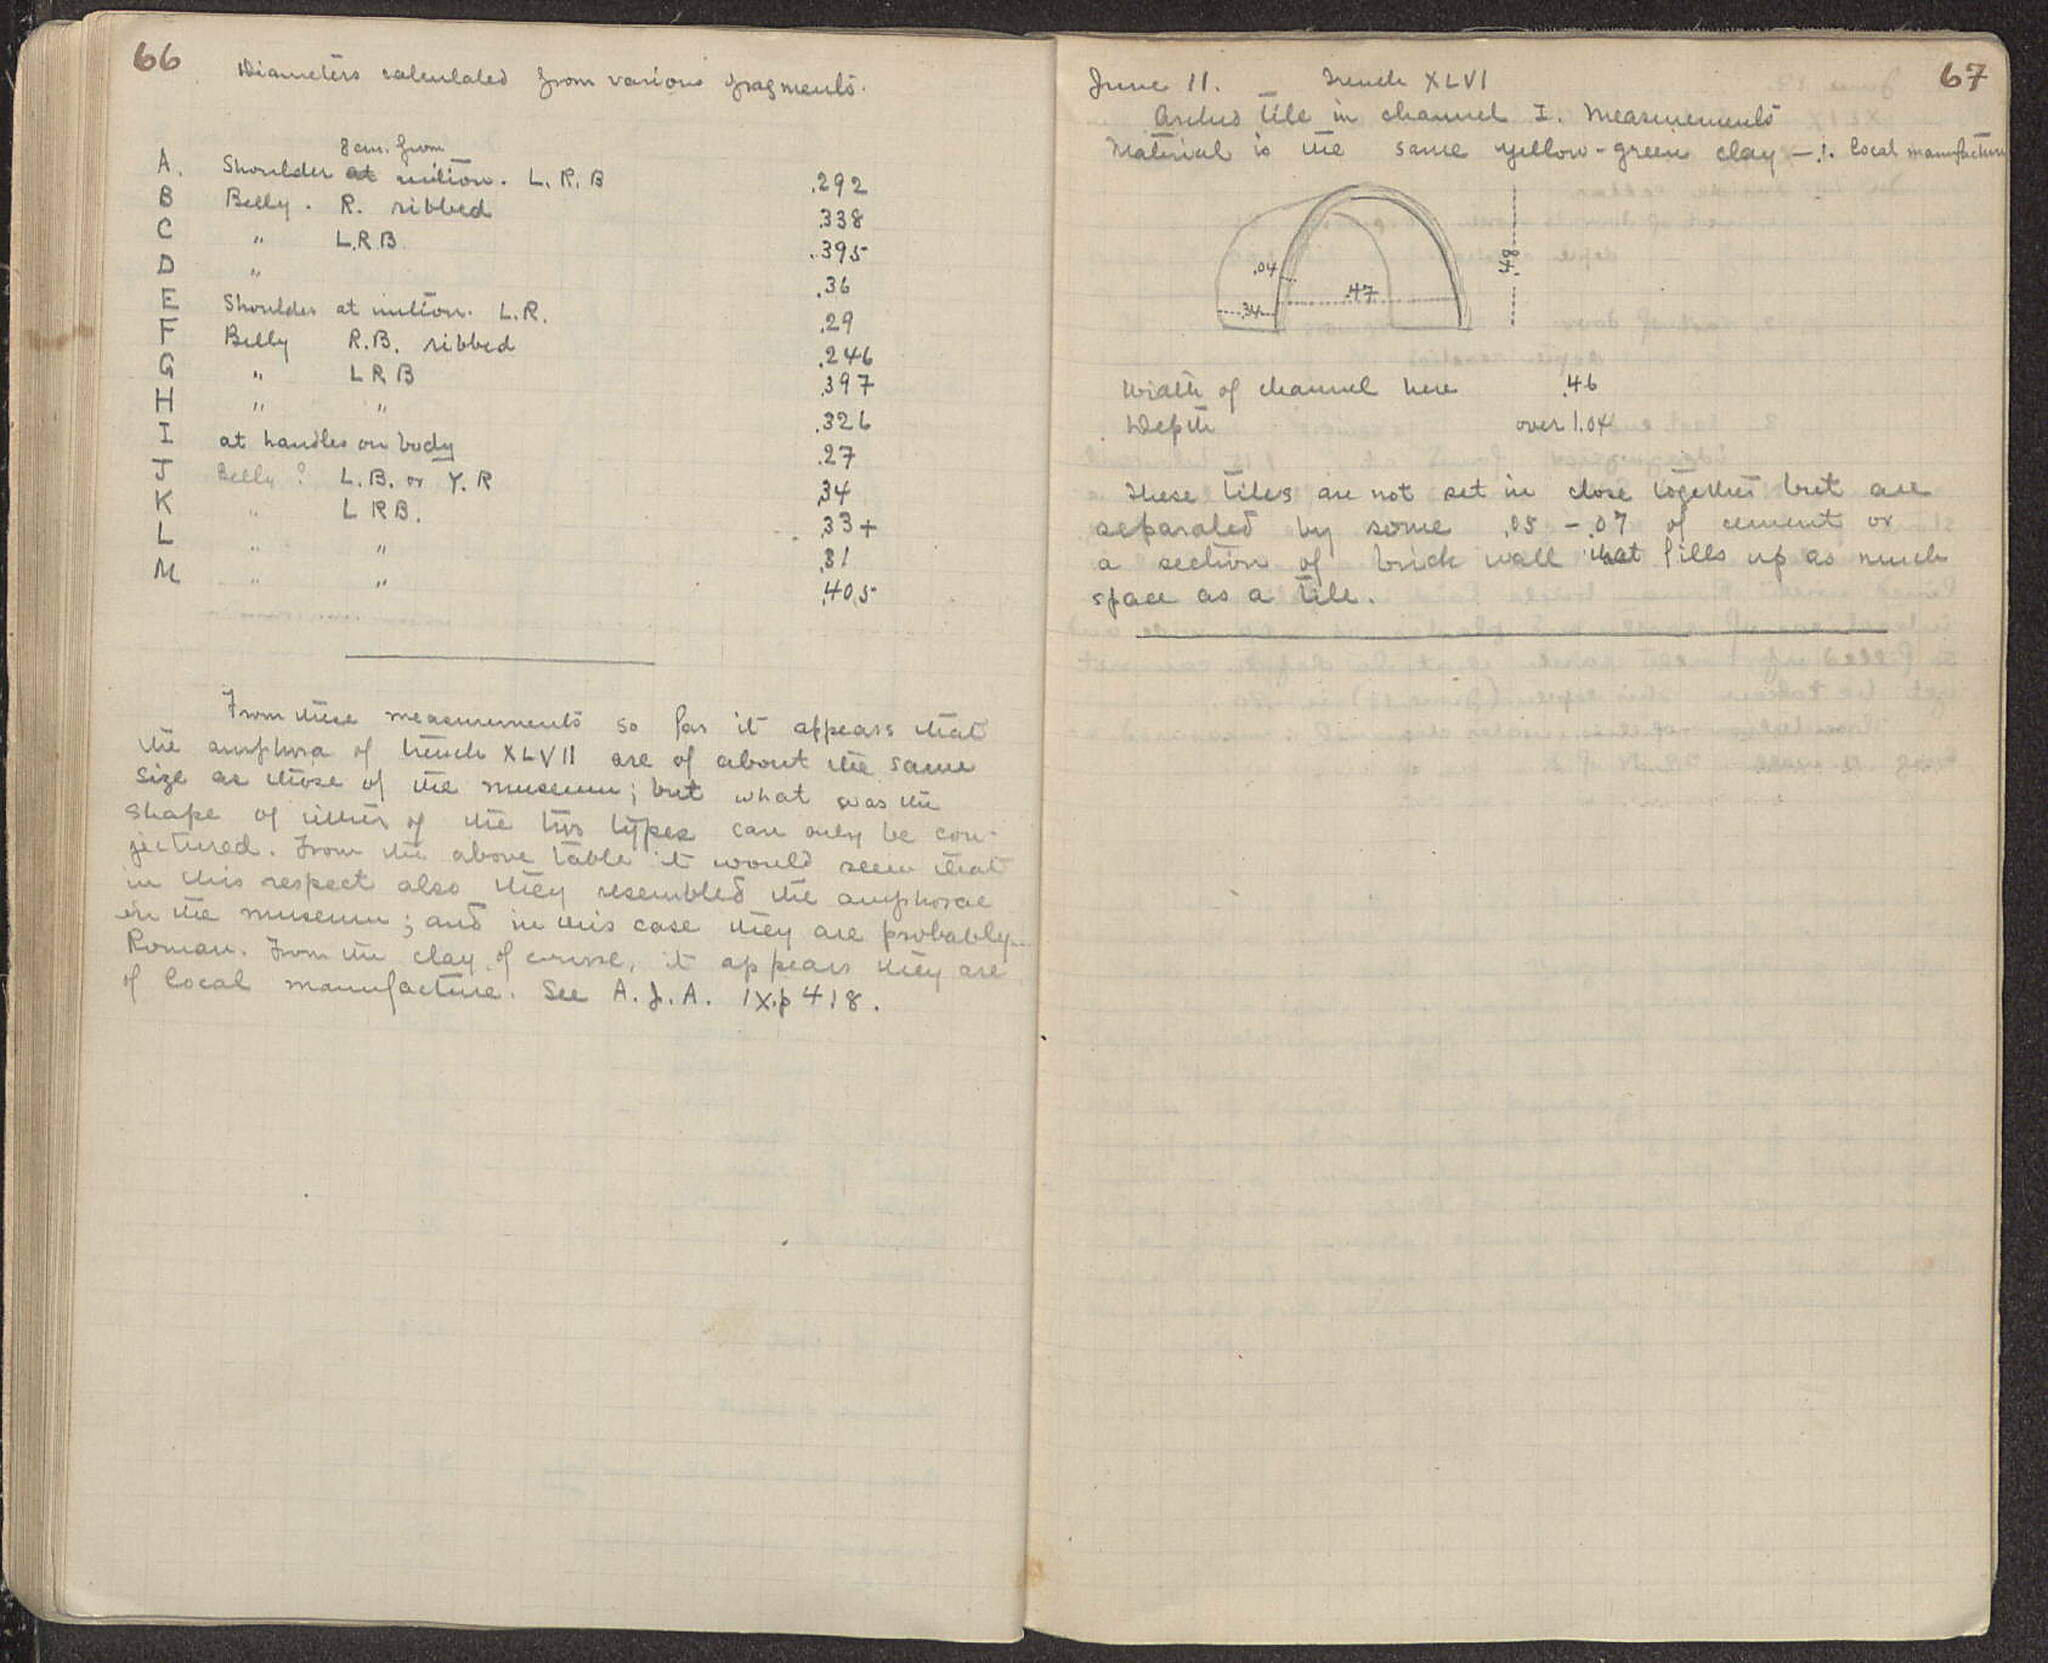 66
Diameters calculated from various fragments.
8 cm. from
A. Shoulder at union. L. R. B .292
B Belly. R. ribbed .338
C " L.R.B. .395
D " .36
E Shoulder at union. L.R. .29
F Belly R.B. ribbed .246
G " L R B .397
H " " .326
I at handles on body .27
J Belly? L.B. or Y.R .34
K " L RB. .33+
L " " .31
M " " .405
From these measurements so far it appears that
the amphora of trench XLVII are of about the same
size as those of the museum; but what was the
shape of either of the two types can only be con-
jectured. From the above table it would seem that
in this respect also they resembled the amphorae
in the museum; and in this case they are probably
Roman. From the clay, of course, it appears they are
of local manufacture. See A. J. A. IX.p 418.
67
June 11. Trench XLVI
Arched tile in channel I. Measurements
Material is the same yellow-green clay — .!. local manufacture
.04
.34
.47
.48
Width of channel here .46
Depth over 1.04
These tiles are not set in close together but are
separated by some .05 - .07 of cement or
a section of brick wall that fills up as much
space as a tile.